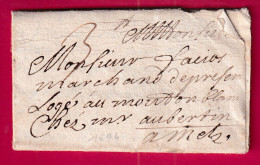 Monsieur
Monsieur
marchand de present
Logé au mouton blanc
Chez mr aubertin
a Metz